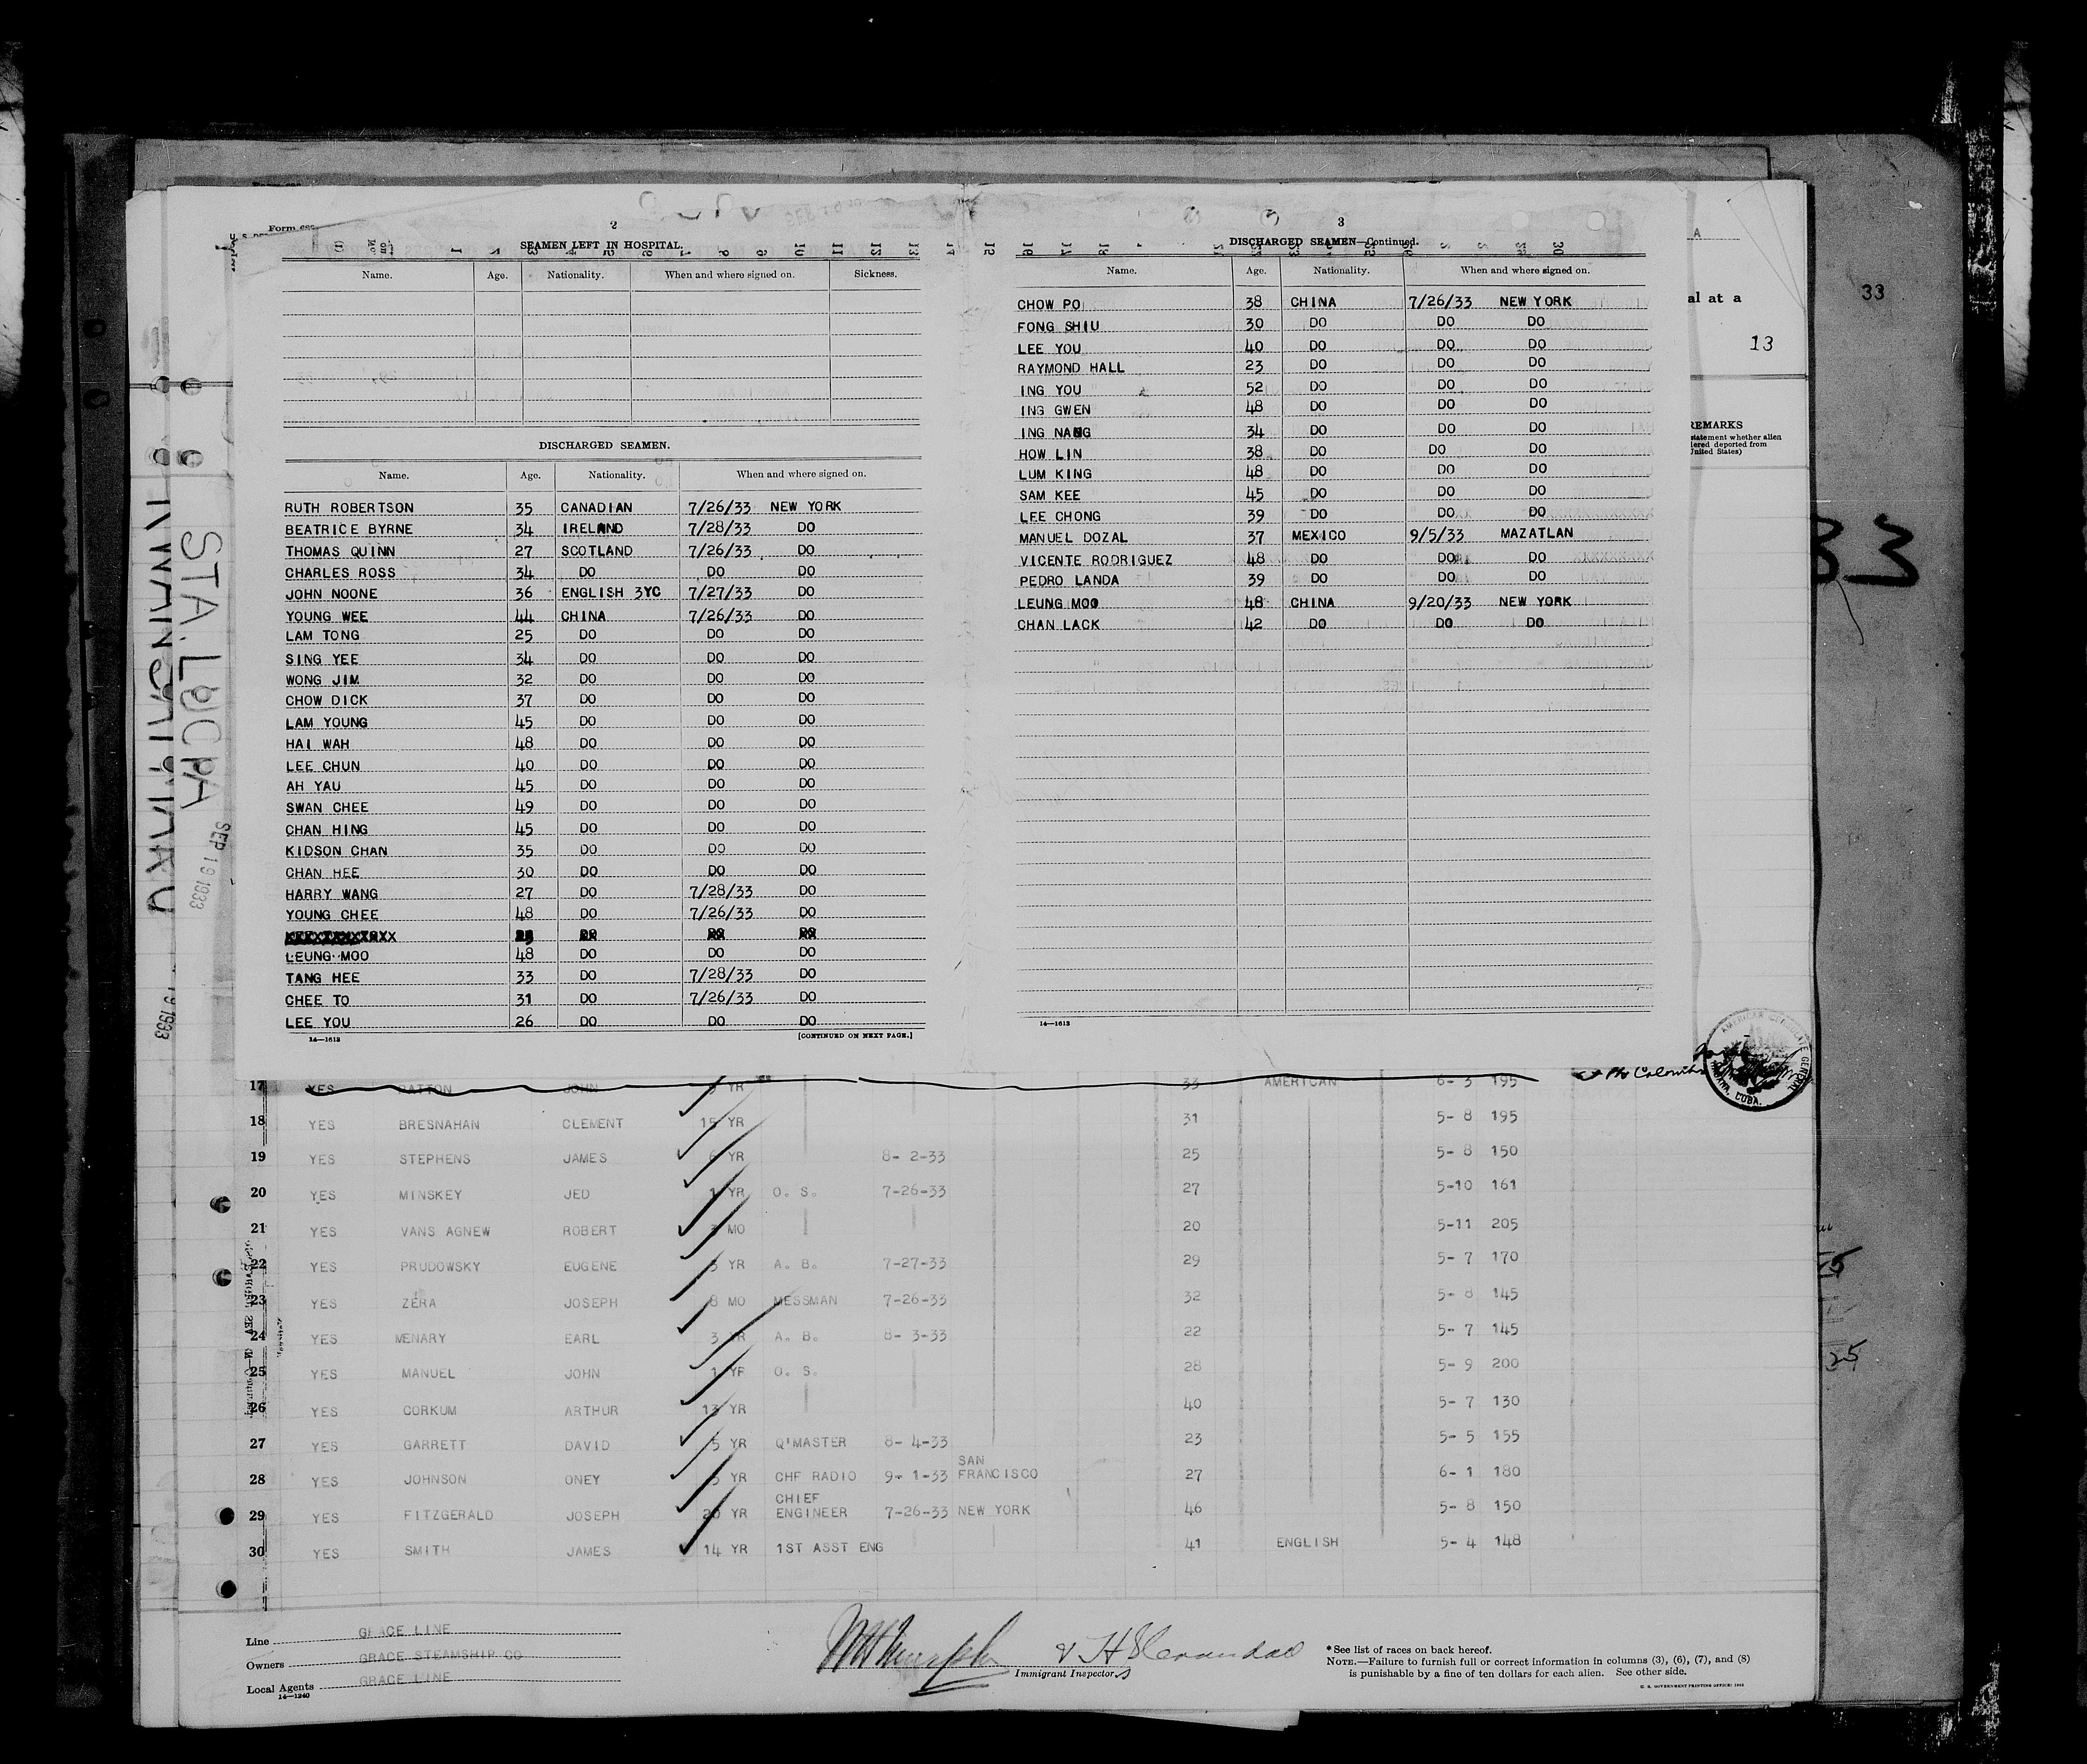 2
SEAMEN LEFT IN HOSPITAL.
Name. Age. Nationality. When and where signed on. Sickness.
DISCHARGED SEAMEN.
Name. Age. Nationality. When and where signed on.
RUTH ROBERTSON 35 CANADIAN 7/26/33 NEW YORK
BEATRICE BYRNE 34 IRELAND 7/28/33 DO
THOMAS QUINN 27 SCOTLAND 7/26/33 DO
CHARLES ROSS 34 DO DO DO
JOHN NOONE 36 ENGLISH 3YC 7/27/33 DO
YOUNG WEE 44 CHINA 7/26/33 DO
LAM TONG 25 DO DO DO
SING YEE 34 DO DO DO
WONG JIM 32 DO DO DO
CHOW DICK 37 DO DO DO
LAM YOUNG 45 DO DO DO
HAI WAH 48 DO DO DO
LEE CHUN 40 DO DO DO
AH YAU 45 DO DO DO
SWAN CHEE 49 DO DO DO
CHAN HING 45 DO DO DO
KIDSON CHAN 35 DO DO DO
CHAN HEE 30 DO DO DO
HARRY WANG 27 DO 7/28/33 DO
YOUNG CHEE 48 DO 7/26/33 DO
LEUNG MOO 48 DO DO DO
TANG HEE 33 DO 7/28/33 DO
CHEE TO 31 DO 7/26/33 DO
LEE YOU 26 DO DO DO
14—1613 [CONTINUED ON NEXT PAGE.]
3
DISCHARGED SEAMEN—Continued.
Name. Age. Nationality. When and where signed on.
CHOW PO 38 CHINA 7/26/33 NEW YORK
FONG SHIU 30 DO DO DO
LEE YOU 40 DO DO DO
RAYMOND HALL 23 DO DO DO
ING YOU 52 DO DO DO
ING GWEN 48 DO DO DO
ING NANG 34 DO DO DO
HOW LIN 38 DO DO DO
LUM KING 48 DO DO DO
SAM KEE 45 DO DO DO
LEE CHONG 39 DO DO DO
MANUEL DOZAL 37 MEXICO 9/5/33 MAZATLAN
VICENTE RODRIGUEZ 48 DO DO DO
PEDRO LANDA 39 DO DO DO
LEUNG MOO 48 CHINA 9/20/33 NEW YORK
CHAN LACK 42 DO DO DO
14—1613
al at a
33
13
REMARKS
statement whether alien
ered deported from
United States)
33
STA. LUCPA
SEP 19 1933
1933
AMERICAN CONSULATE GENERAL
HABANA, CUBA.
17 YES DATTON JOHN YR 33 AMERICAN 6- 3 195
18 YES BRESNAHAN CLEMENT 15 YR 31 5- 8 195
19 YES STEPHENS JAMES YR 8- 2-33 25 5- 8 150
20 YES MINSKEY JED 1 YR O. S. 7-26-33 27 5-10 161
21 YES VANS AGNEW ROBERT MO 20 5-11 205
22 YES PRUDOWSKY EUGENE 3 YR A. B. 7-27-33 29 5- 7 170
23 YES ZERA JOSEPH 8 MO MESSMAN 7-26-33 32 5- 8 145
24 YES MENARY EARL 3 YR A. B. 8- 3-33 22 5- 7 145
25 YES MANUEL JOHN 1 YR O. S. 28 5- 9 200
26 YES CORKUM ARTHUR 13 YR 40 5- 7 130
27 YES GARRETT DAVID 5 YR Q'MASTER 8- 4-33 23 5- 5 155
28 YES JOHNSON ONEY YR CHF RADIO 9- 1-33 SAN FRANCISCO 27 6- 1 180
29 YES FITZGERALD JOSEPH 20 YR CHIEF ENGINEER 7-26-33 NEW YORK 46 5- 8 150
30 YES SMITH JAMES 14 YR 1ST ASST ENG 41 ENGLISH 5- 4 148
25
Line GRACE LINE
Owners GRACE STEAMSHIP CO
Local Agents GRACE LINE
14—1240
Immigrant Inspectors
*See list of races on back hereof.
NOTE.—Failure to furnish full or correct information in columns (3), (6), (7), and (8)
is punishable by a fine of ten dollars for each alien. See other side.
U. S. GOVERNMENT PRINTING OFFICE